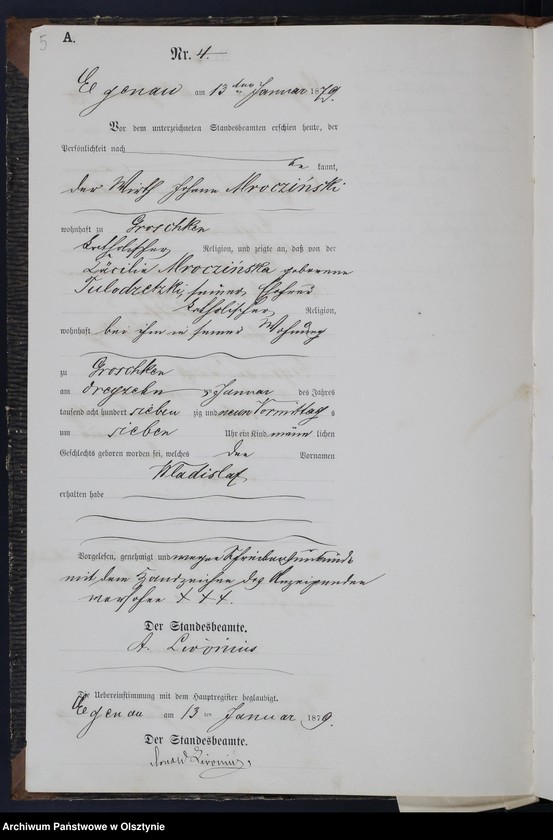 5
A.
Nr. 4.
Egenau am 13ten Januar 1879.
Vor dem unterzeichneten Standesbeamten erschien heute, der
Persönlichkeit nach
be kannt,
der Wirth Johann Mroczinski
wohnhaft zu Groschken
katholischer Religion, und zeigte an, daß von der
Cäcilie Mroczińska geborene
Tulodzetzki, seiner Ehefrau
katholischer Religion,
wohnhaft bei ihm in seiner Wohnung
zu Groschken
am dreyzehn Januar des Jahres
tausend acht hundert sieben zig und neun Vormittag s
um sieben Uhr ein Kind männ lichen
Geschlechts geboren worden sei, welches den Vornamen
Wladislaf
erhalten habe
Vorgelesen, genehmigt und wegen Schreibensunkunde
mit dem Handzeichen des Anzeigenden
versehen + + +.
Der Standesbeamte.
A. Livonius
Die Uebereinstimmung mit dem Hauptregister beglaubigt.
Egenau am 13 ten Januar 1879.
Der Standesbeamte.
Livonius,
Archiwum Państwowe w Olsztynie